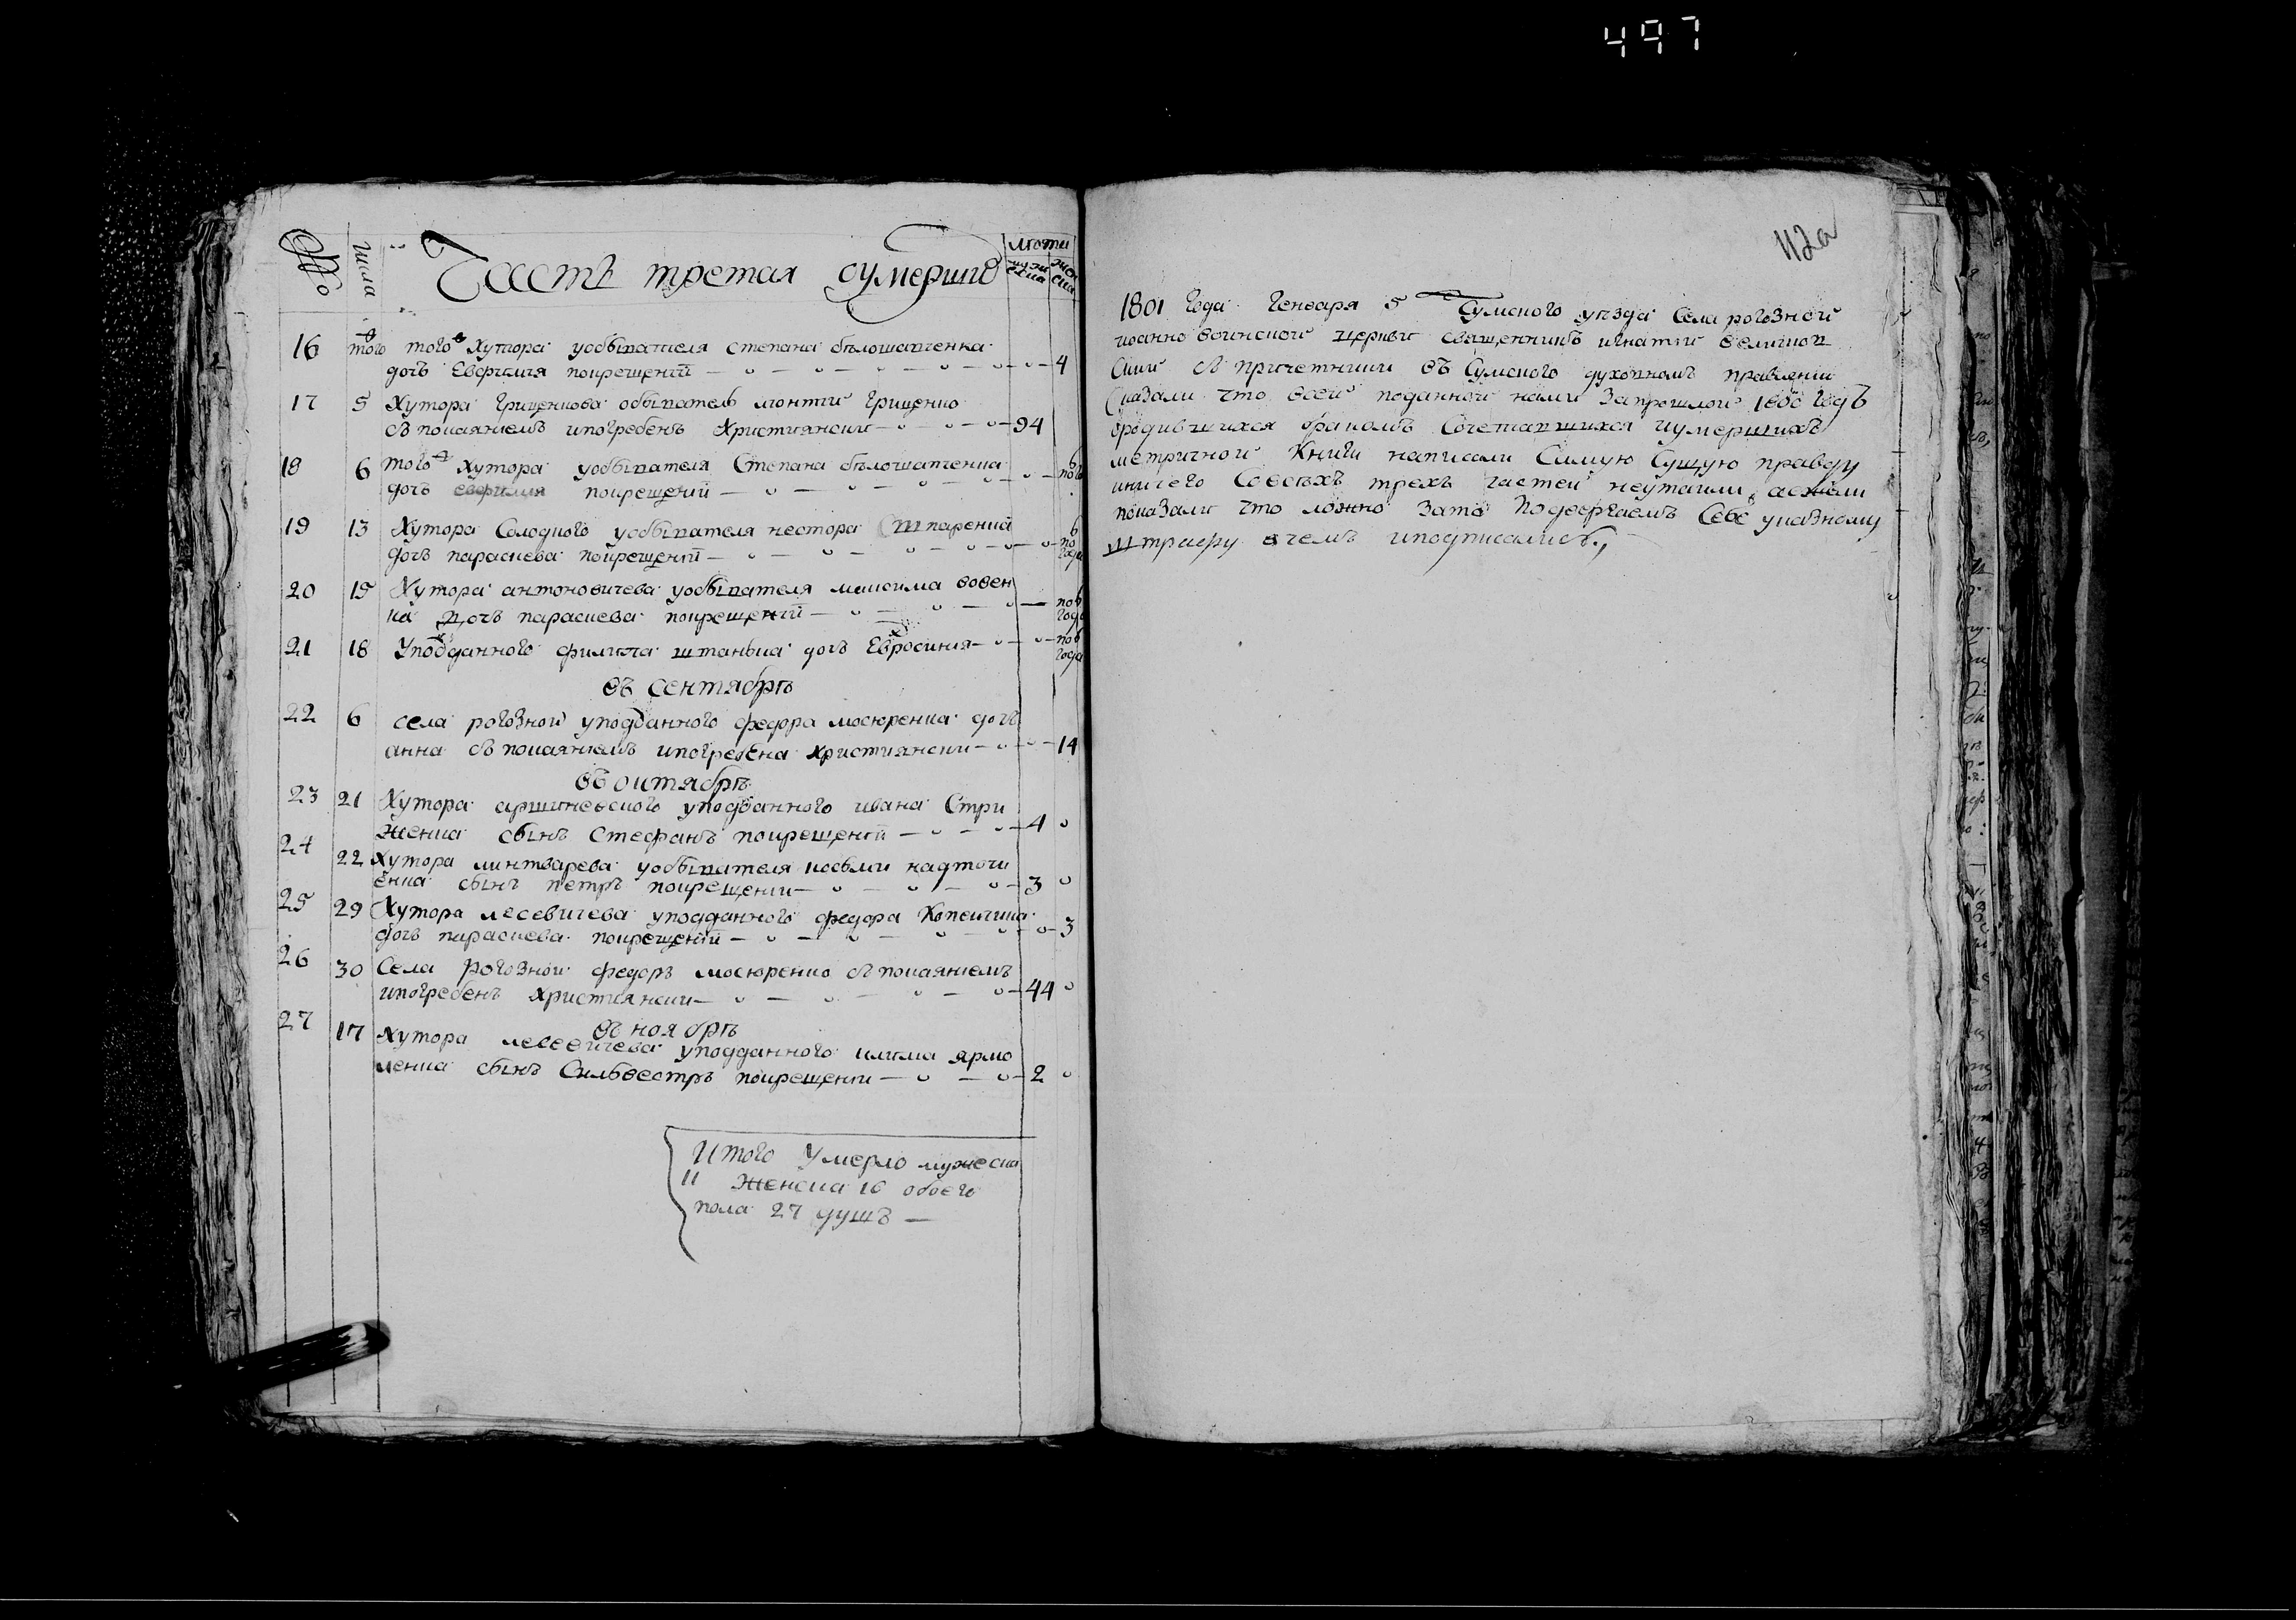 497
112а
№
Числа
Часть третая оумерших
Лѣта
мужеска
женска
16 того ж того ж Хутора уобывателя степана бѣлошапченка
дочь Евфимия покрещений 4
17 5 Хутора Грищенкова обыватель монтий Грищенко
съ покаяниемъ ипогребенъ Християнски 94
18 6 того ж Хутора уобывателя Степана бѣлошапченка
дочь евфимия покрещений
19 13 Хутора Солодкого уобывателя нестора
дочь параскева покрещений пол года
20 15 Хутора антоновичева уобывателя максима вовен
ка дочь параскева покрещений пол года
21 18 Уподданного филипа штанька дочь Евросиния пол года
въ сентябрѣ
22 6 села рогозной уподданного федора москренка дочь
анна съ покаяниемъ ипогребена християнски 14
въ октябрѣ
23 21 Хутора аршиневского уподданного ивана Стри
женка сынъ Стефанъ покрещений 4
24 22 Хутора линтварева уобывателя косьми надточи
енка сынъ петръ покрещений 3
25 29 Хутора лесевичева уподданного федора Копейчика
дочь параскева покрещений 3
26 30 Села рогозной федоръ москренко съ покаяниемъ
ипогребенъ християнски 44
въ ноябрѣ
27 17 Хутора лесевичева уподданного клима ярмо
ленка сынъ Сильвестръ покрещений 2
Итого Умерло мужеска
11 женска 16 обоего
пола 27 душъ
1801 Года Генваря 5 Сумского уѣзда Села рогозной
иоанно воинской церкви священникъ игнатий
Ский съ причетники въ Сумского духовномъ правлении
Сказали что всей поданной нами Запрошлой 1800 Годъ
ородившихся бракомъ Сочетавшихся иумершихъ
метричной Книги написали Самую Сущую правду
иничего Совсѣхъ трехъ частей неутаили, аежели
показали что ложно Зато Подвергаемъ Себе указному
штрафу вчемъ иподписались.